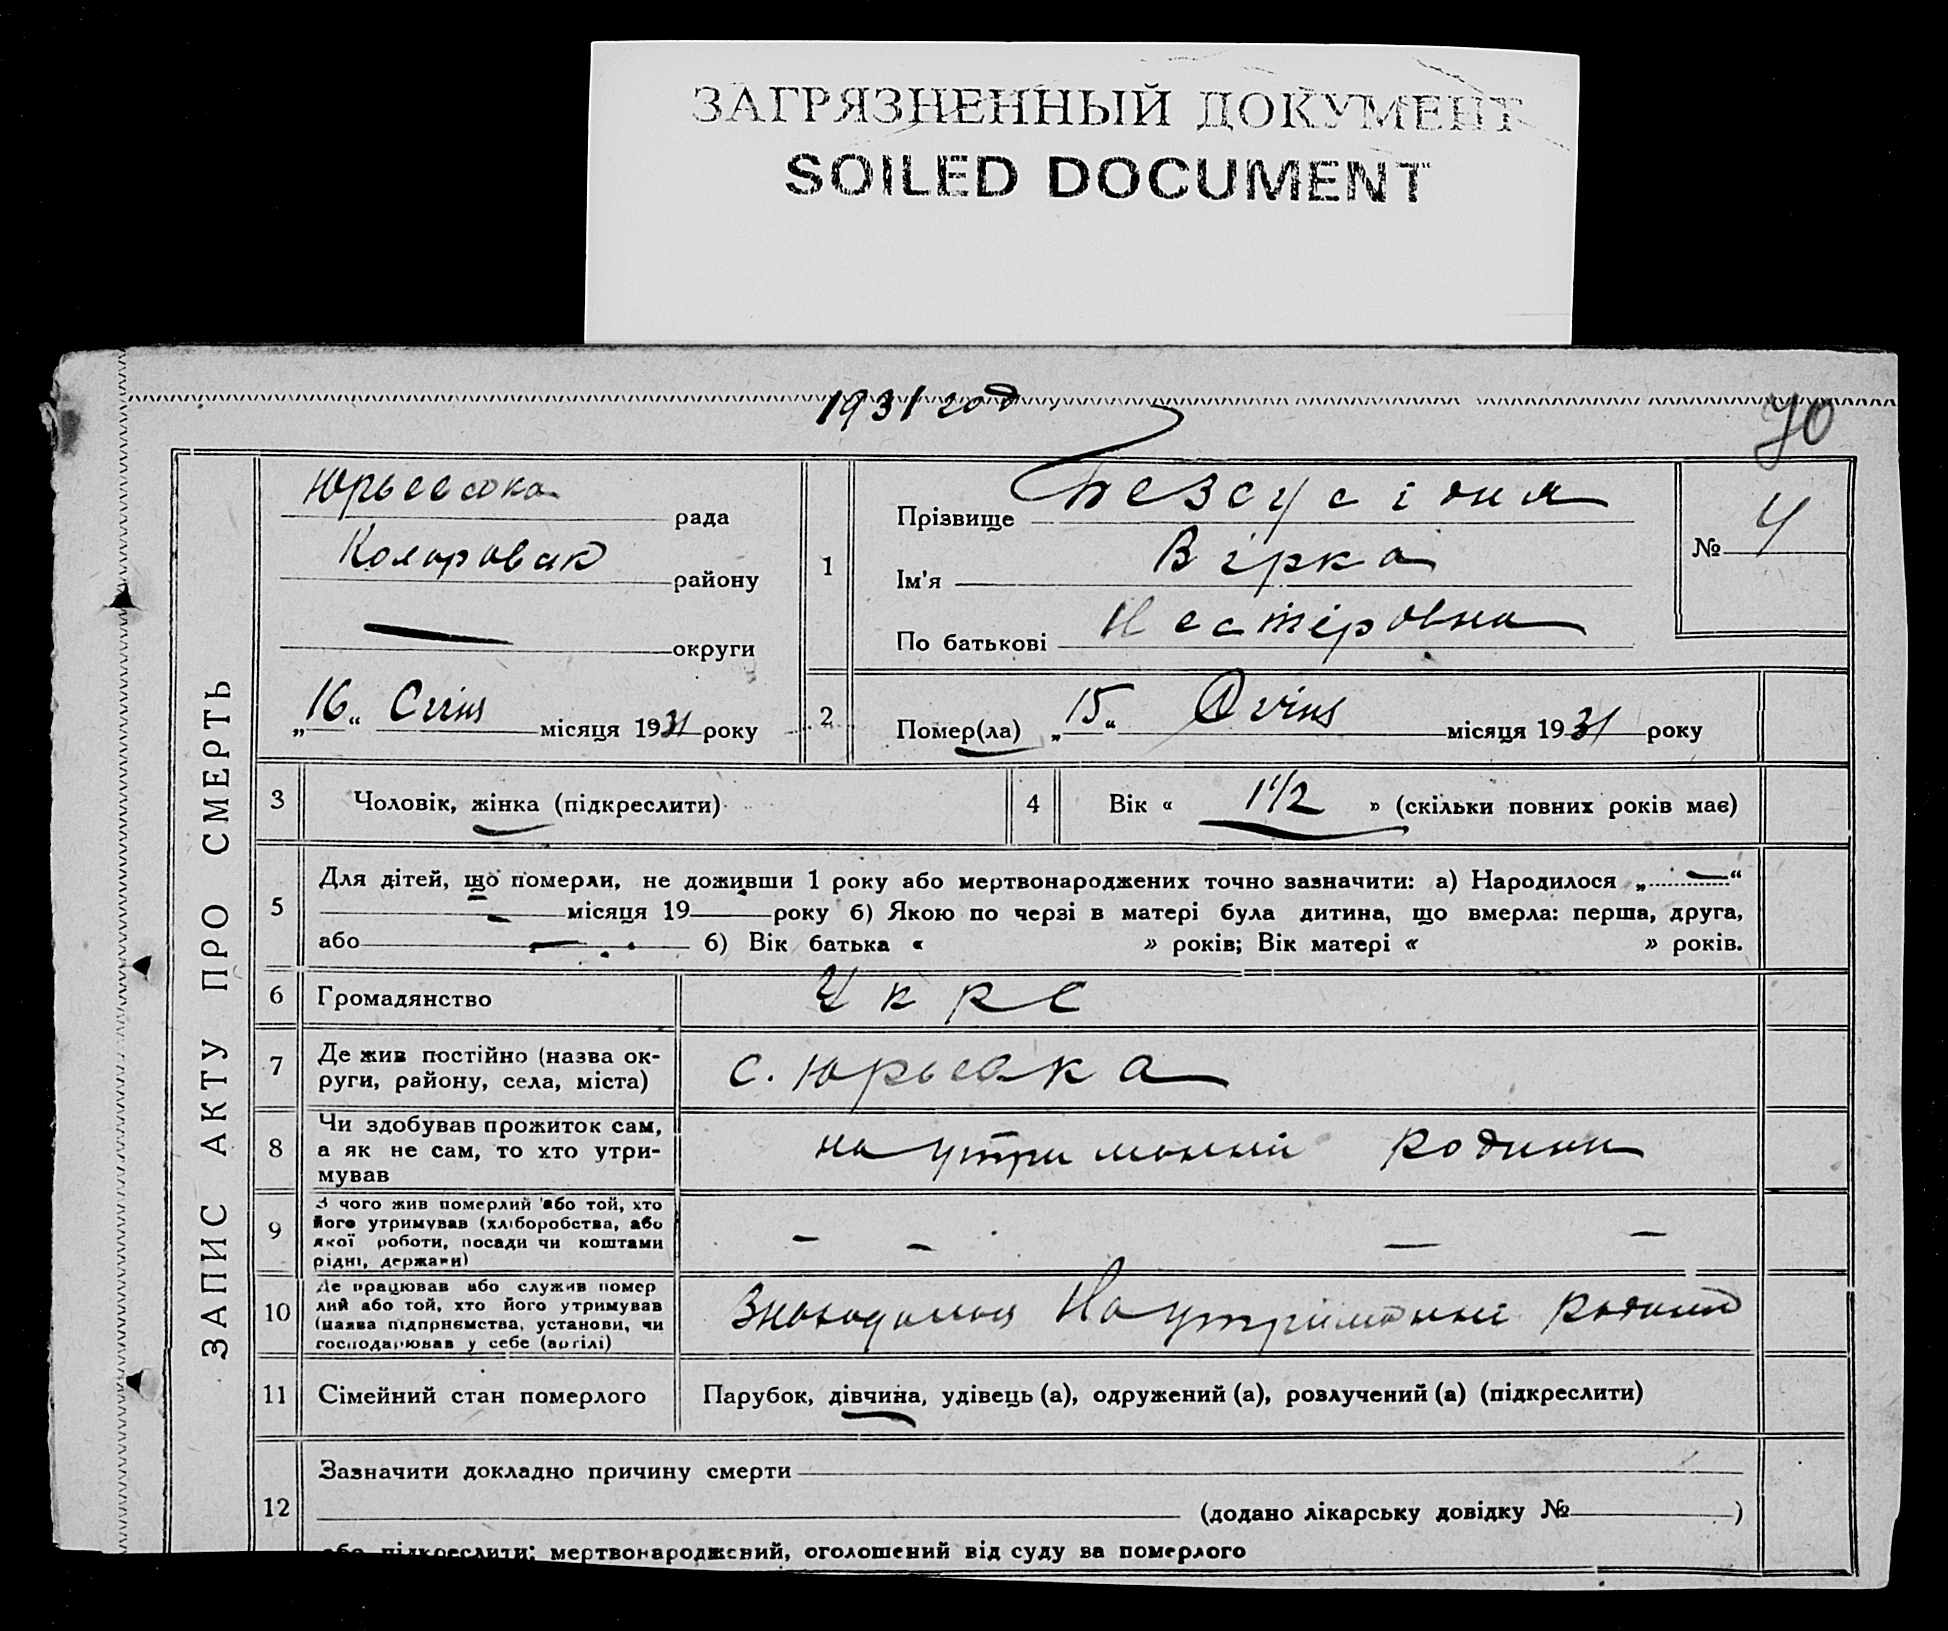 ЗАГРЯЗНЕННЫЙ ДОКУМЕНТ
SOILED DOCUMENT
1931 год
70
ЗАПИС АКТУ ПРО СМЕРТЬ
Юрьевсока рада
Коларовск району
округи
„16“ Січня місяця 1931 року
1
Прізвище
Ім'я Вірка
По батькові Нестіровна
№ 4
2
Помер(ла) „15“ Січня місяця 1931 року
3 Чоловік, жінка (підкреслити)
4 Вік « 1 1/2 » (скільки повних років має)
5 Для дітей, що померли, не доживши 1 року або мертвонароджених точно зазначити: а) Народилося „ — “
місяця 19 року б) Якою по черзі в матері була дитина, що вмерла: перша, друга,
або б) Вік батька « » років; Вік матері « » років.
6 Громадянство УкрС
7 Де жив постійно (назва ок-
руги, району, села, міста) с. Юрьевка
8 Чи здобував прожиток сам,
а як не сам, то хто утри-
мував на утриманні родини
9 З чого жив померлий або той, хто
його утримував (хліборобства, або
якої роботи, посади чи коштами
рідні, держави) – – — –
10 Де працював або служив помер
лий або той, хто його утримував
(назва підприємства, установи, чи
господарював у себе (артілі) На утриманні родини
11 Сімейний стан померлого Парубок, дівчина, удівець (а), одружений (а), розлучений (а) (підкреслити)
12 Зазначити докладно причину смерти
(додано лікарську довідку № )
або підкреслити: мертвонароджений, оголошений від суду за померлого